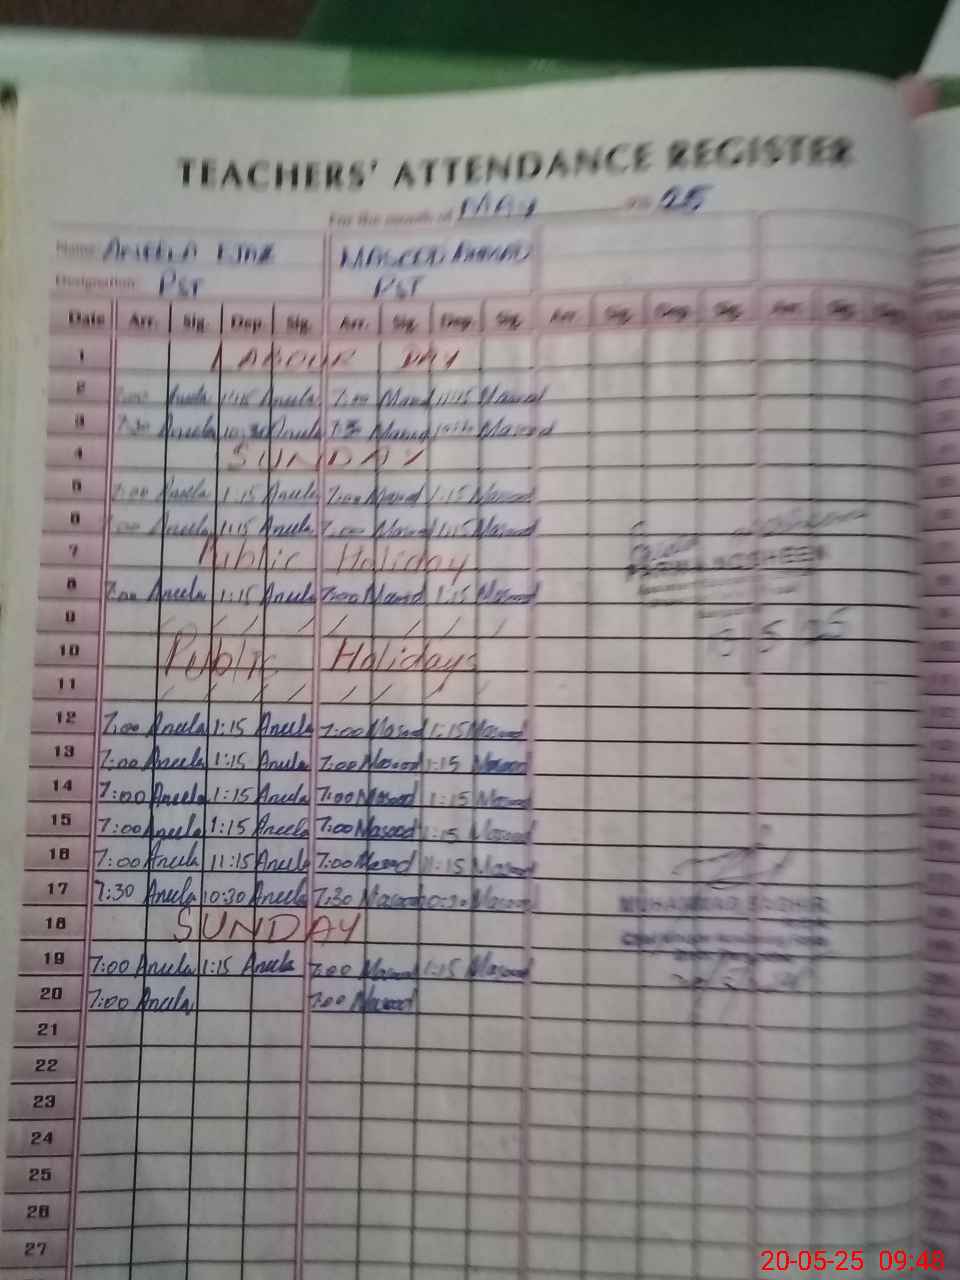 TEACHERS' ATTENDANCE REGISTER
For the month of MAY 25
Name ANEELA EJAZ MASOOD AHMAD
Designation PST PST
Date Arr. Sig. Dep. Sig. Arr. Sig. Dep. Sig. Arr. Sig. Dep. Sig. Arr. Sig.
1 LABOUR DAY
2 7:00 Aneela 11:15 Aneela 7:00 Masood 11:15 Masood
3 7:30 Aneela 10:30 Aneela 7:30 Masood 10:30 Masood
4 SUNDAY
5 7:00 Aneela 1:15 Aneela 7:00 Masood 1:15 Masood
6 7:00 Aneela 1:15 Aneela 7:00 Masood 1:15 Masood
7 Public Holiday
8 7:00 Aneela 1:15 Aneela 7:00 Masood 1:15 Masood
9
10 Public Holidays
11
12 7:00 Aneela 1:15 Aneela 7:00 Masood 1:15 Masood
13 7:00 Aneela 1:15 Aneela 7:00 Masood 1:15 Masood
14 7:00 Aneela 1:15 Aneela 7:00 Masood 1:15 Masood
15 7:00 Aneela 1:15 Aneela 7:00 Masood 1:15 Masood
16 7:00 Aneela 11:15 Aneela 7:00 Masood 11:15 Masood
17 7:30 Aneela 10:30 Aneela 7:30 Masood 10:30 Masood
MUHAMMAD
18 SUNDAY
19 7:00 Aneela 1:15 Aneela 7:00 Masood 1:15 Masood
20 7:00 Aneela 7:00 Masood
21
22
23
24
25
26
27
20-05-25 09:48